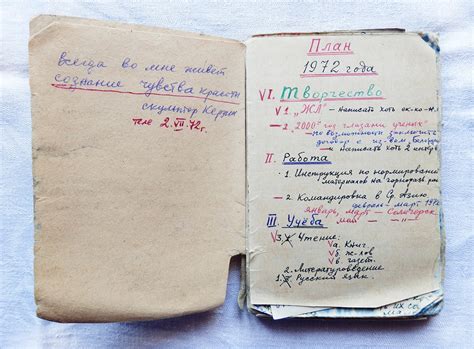 всегда во мне живет
сознание чувства красоты
скульптор
2. VII. 72г.
План
1972 года
VI. Творчество
V 1. „ЖЛ" – Написать хоть
– 2. „2000" год глазами ученых"
– по возможности заключить
договор с
– и Написать хоть 2
II. Работа
1. Инструкция по нормированию
материалов на
– 2. Командировка в Ср. Азию
феврале – март 1972
январь, март – Солигорск
май –
III. Учёба
V 3. Чтение:
Vа. Книг
Vб. ж-лов
Vв. газет.
2. Литературоведение
1. Русский язык.